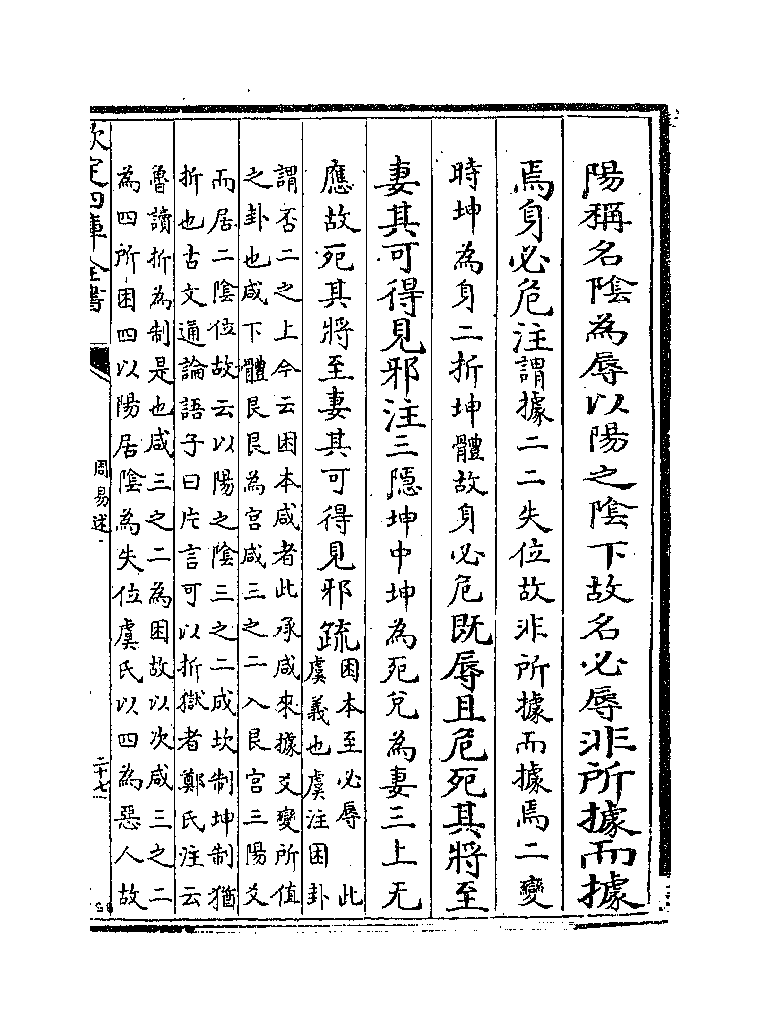 陽稱名陰為辱以陽之陰下故名必辱非所據而據
焉身必危注謂據二二失位故非所據而據焉二變
時坤為身二折坤體故身必危既辱且危死其將至
妻其可得見邪注三隱坤中坤為死兌為妻三上无
應故死其將至妻其可得見邪疏
困本至必辱 此
虞義也虞注困卦
謂否二之上今云困本咸者此承咸來據爻變所值
之卦也咸下體艮艮為宫咸三之二入艮宫三陽爻
而居二陰位故云以陽之陰三之二成坎制坤制猶
折也古文通論語子曰片言可以折獄者鄭氏注云
魯讀折為制是也咸三之二為困故以次咸三之二
為四所困四以陽居陰為失位虞氏以四為惡人故
欽定四庫全書
周易述
二十七